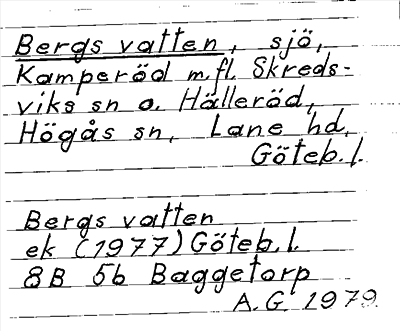 Bergs vatten, sjö,
Kamperöd m.fl. Skreds-
viks sn o. Hälleröd,
Högås sn, Lane hd,
Göteb.l.
Bergs vatten
ek (1977) Göteb.l.
8B 5b Baggetorp
A.G. 1979.